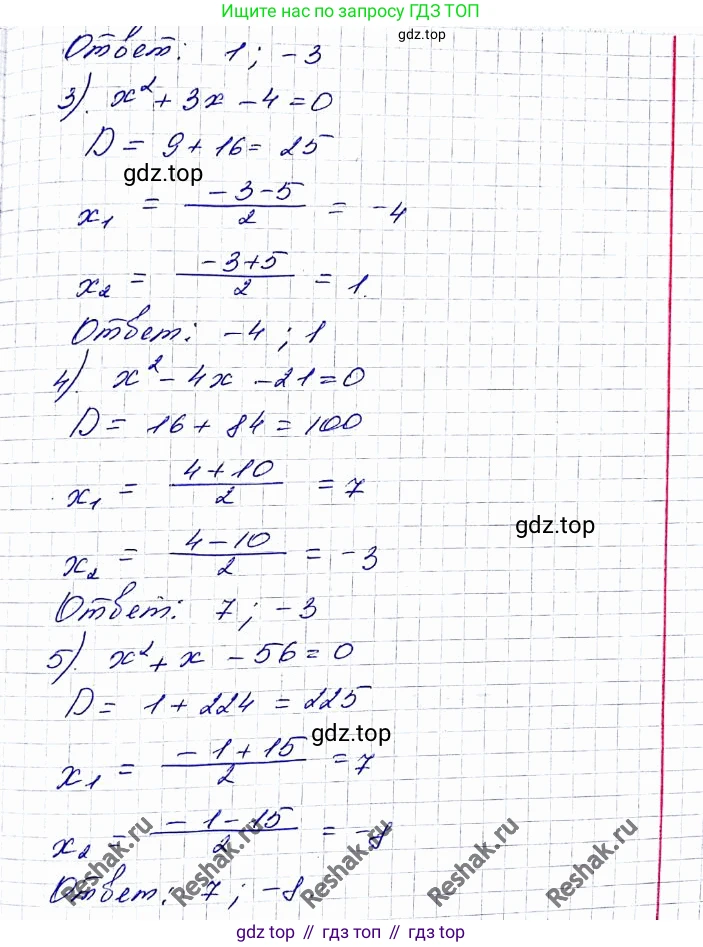 Ищите нас в поиске по запросу ГДЗ ТОП
Ответ: 1; -3
gdz.top
3). x² + 3x - 4 = 0
D = 9 + 16 = 25
gdz.top
x₁ = (-3-5)/2 = -4
x₂ = (-3+5)/2 = 1.
Ответ: -4; 1
4). x² - 4x - 21 = 0
D = 16 + 84 = 100
x₁ = (4+10)/2 = 7
gdz.top
x₂ = (4-10)/2 = -3
Ответ: 7; -3
5). x² + x - 56 = 0
D = 1 + 224 = 225
gdz.top
x₁ = (-1+15)/2 = 7
x₂ = (-1-15)/2 = -8
Reshak.ru Reshak.ru Reshak.ru Reshak.ru Reshak.ru
Ответ: 7; -8
gdz.top // гдз топ // гдз.top